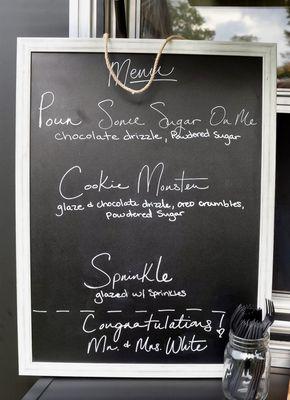 Menu
Pour Some Sugar On Me
chocolate drizzle, Powdered Sugar
Cookie Monster
glaze & chocolate drizzle, oreo crumbles,
powdered Sugar
Sprinkle
glazed w/ Sprinkles
Congratulations!
Mr. & Mrs. White